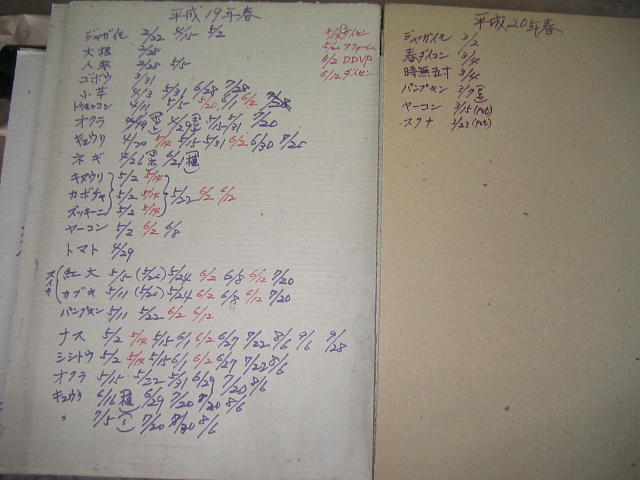 平成19年春
ジャガイモ 2/22 4/15 5/2
大根 2/28
人参 2/28 5/5
ゴボウ 3/31
小芋 4/3 5/31 6/28 7/28
トウモロコシ 4/11 5/5 5/20 6/1 6/2 7/28
オクラ 4/19 4/29 5/15 5/31 7/20
キュウリ 4/20 5/14 5/15 5/31 6/2 6/30 7/25
ネギ 4/26 6/21 植
キュウリ 5/2 5/14
カボチャ 5/2 5/14 5/22 6/2 6/12
ズッキーニ 5/2 5/14
ヤーコン 5/2 6/2 6/8
トマト 4/29
スイカ
紅大 5/15 (5/20) 5/24 6/2 6/8 6/12 7/20
カブキ 5/11 (5/20) 5/24 6/2 6/8 6/12 7/20
パンプキン 5/11 5/22 6/2 6/12
ナス 5/2 5/14 5/15 6/1 6/2 6/27 7/22 8/6 9/6 9/28
シシトウ 5/2 5/14 5/15 6/1 6/2 6/27 7/22 8/6
オクラ 5/15 5/22 5/31 6/29 7/20 8/6
キュウリ 6/16 植 6/29 7/20 7/30 8/6
〃 7/5 7/20 8/6
5/14 ダイセン
6/2 DDVP
6/12 ダイセン
平成20年春
ジャガイモ 3/2
春ダイコン 3/4
時無五寸 3/4
パンプキン 3/7
ヤーコン 3/15 (Pot)
スクナ 3/23 (Pot)